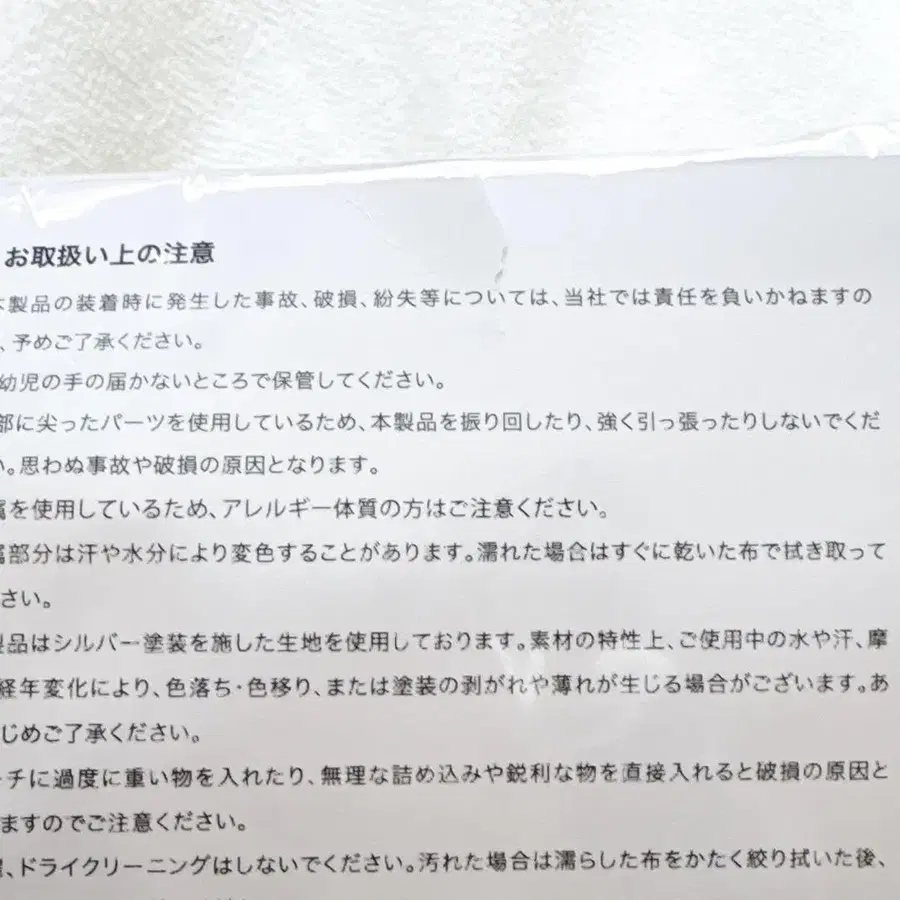 お取扱い上の注意
本製品の装着時に発生した事故、破損、紛失等については、当社では責任を負いかねますの
、予めご了承ください。
幼児の手の届かないところで保管してください。
部に尖ったパーツを使用しているため、本製品を振り回したり、強く引っ張ったりしないでくだ
い。思わぬ事故や破損の原因となります。
属を使用しているため、アレルギー体質の方はご注意ください。
属部分は汗や水分により変色することがあります。濡れた場合はすぐに乾いた布で拭き取って
さい。
製品はシルバー塗装を施した生地を使用しております。素材の特性上、ご使用中の水や汗、摩
経年変化により、色落ち・色移り、または塗装の剥がれや薄れが生じる場合がございます。あ
じめご了承ください。
ーチに過度に重い物を入れたり、無理な詰め込みや鋭利な物を直接入れると破損の原因と
ますのでご注意ください。
、ドライクリーニングはしないでください。汚れた場合は濡らした布をかたく絞り拭いた後、